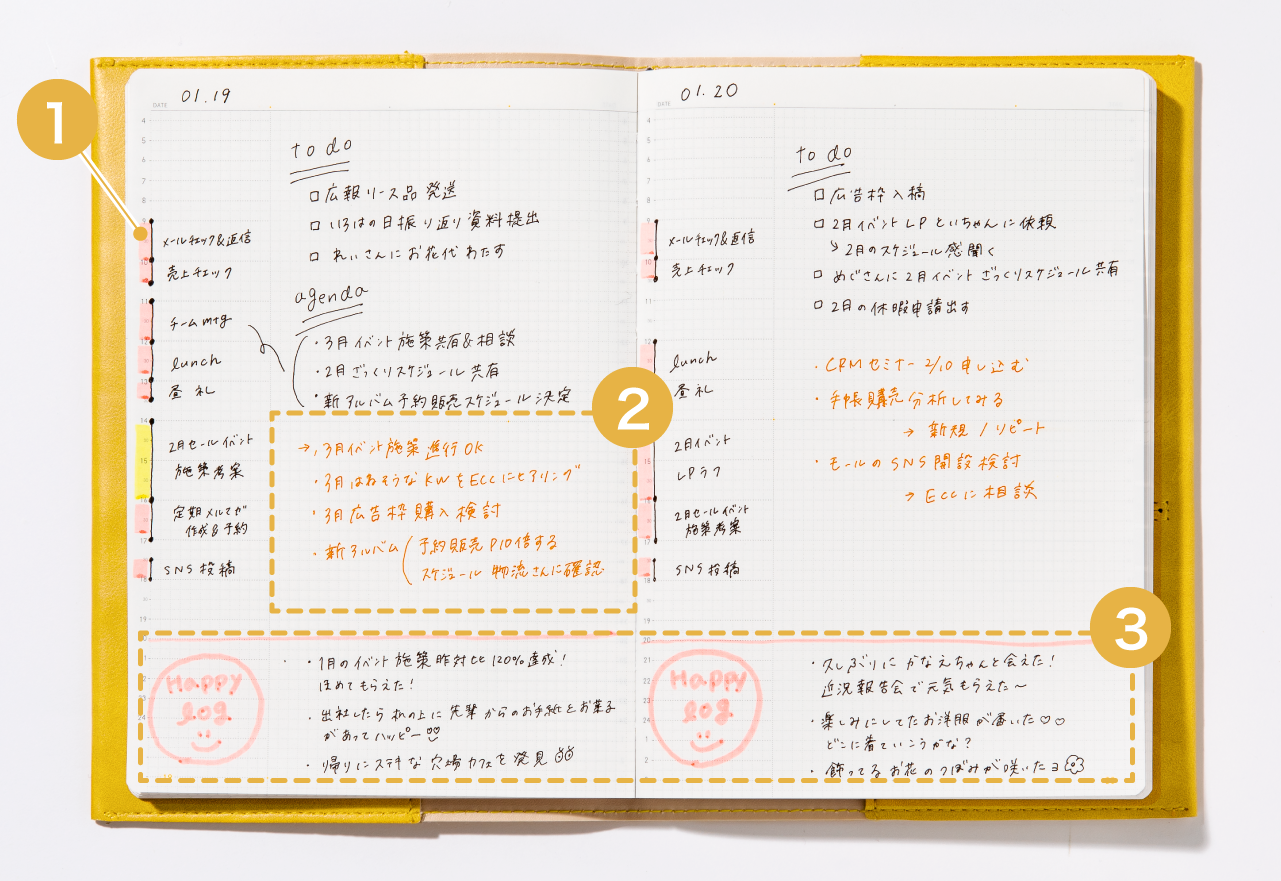 1
DATE
01.19
4
5
6
7
8
9
メールチェック&返信
10
売上チェック
11
チームmtg
lunch
13
昼礼
14
2月セールイベント
15
施策考案
16
定期メルマガ
作成&予約
17
SNS投稿
18
19
to do
□ 広報リース品 発送
□ いろはの日振り返り資料提出
□ れいさんにお花代わたす
agenda
・3月イベント施策共有&相談
・2月ざっくりスケジュール共有
・新アルバム予約販売スケジュール決定
2
→・3月イベント施策進行OK
・3月はねそうなKWをECCにヒアリング
・3月広告枠購入検討
・新アルバム
予約販売P10倍する
スケジュール 物流さんに確認
20
Happy
log
・1月のイベント施策昨対比120%達成!
ほめてもらえた!
・出社したら机の上に先輩からのお手紙とお菓子
があってハッピー♡
・帰りにステキな穴場カフェを発見
DATE
01.20
4
5
6
7
8
9
メールチェック&返信
10
売上チェック
11
12
lunch
13
昼礼
14
2月イベント
15
LPラフ
16
2月セールイベント
施策考案
17
SNS投稿
18
19
to do
□ 広告枠入稿
□ 2月イベントLPといちゃんに依頼
↳ 2月のスケジュール感聞く
□ めぐさんに2月イベントざっくりスケジュール共有
□ 2月の休暇申請出す
・CRMセミナー 2/10 申し込む
・手帳購売分析してみる
→ 新規/リピート
・モールのSNS開設検討
→ ECCに相談
3
20
21
22
23
24
1
2
Happy
log
・久しぶりにかなえちゃんと会えた!
近況報告会で元気もらえた〜
・楽しみにしてたお洋服が届いた♡♡
どこに着ていこうかな?
・飾ってるお花のつぼみが咲いたヨ